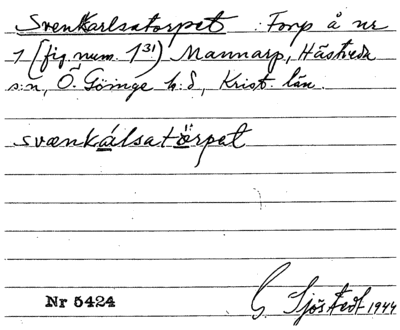 Svenkarlsatorpet : Torp å nr
1 (fig. num. 1³¹) Mannarp, Hästveda
s:n, Ö. Göinge h:d, Krist. län.
svænkálsatö̀rpat
Nr 5424
G Sjöstedt 1944